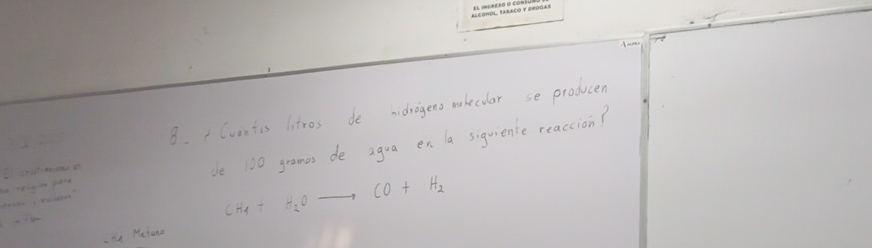 EL INGRESO O CONSUMO
ALCOHOL, TABACO Y DROGAS
8.- ¿Cuántos litros de hidrógeno molecular se producen
de 100 gramos de agua en la siguiente reacción?
CH4 + H2O → CO + H2
CH4 Metano